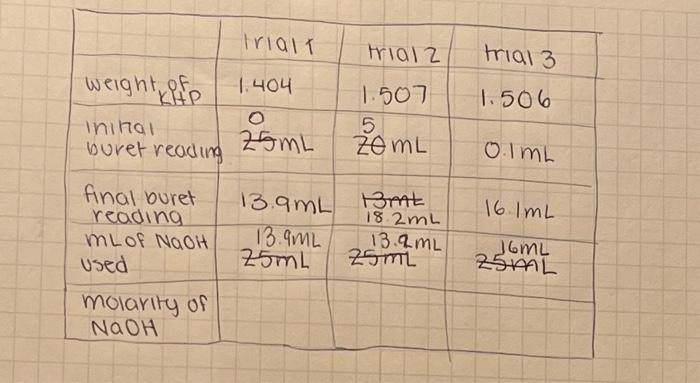 trial 1 trial 2 trial 3
weight of KHP 1.404 1.507 1.506
0 5
initial buret reading 25mL 20mL 0.1mL
final buret reading 13.9mL 13mL 18.2mL 16.1mL
mL of NaOH used 13.9mL 25mL 13.2mL 25mL 16mL 25mL
molarity of NaOH